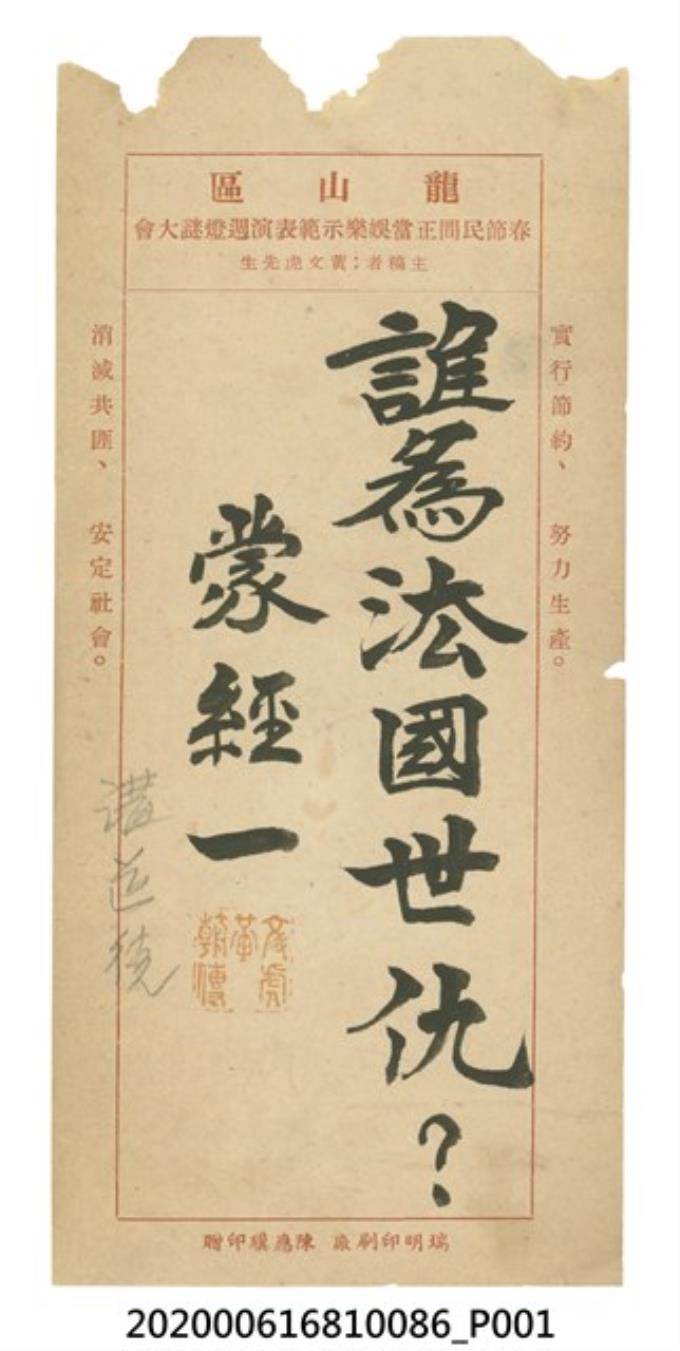 龍山區
春節民間正當娛樂示範表演週燈謎大會
主稿者：黃文虎先生
實行節約、努力生產。
誰為法國世仇？
蒙經一
消滅共匪、安定社會。
瑞明印刷廠 陳應騏印贈
202000616810086_P001